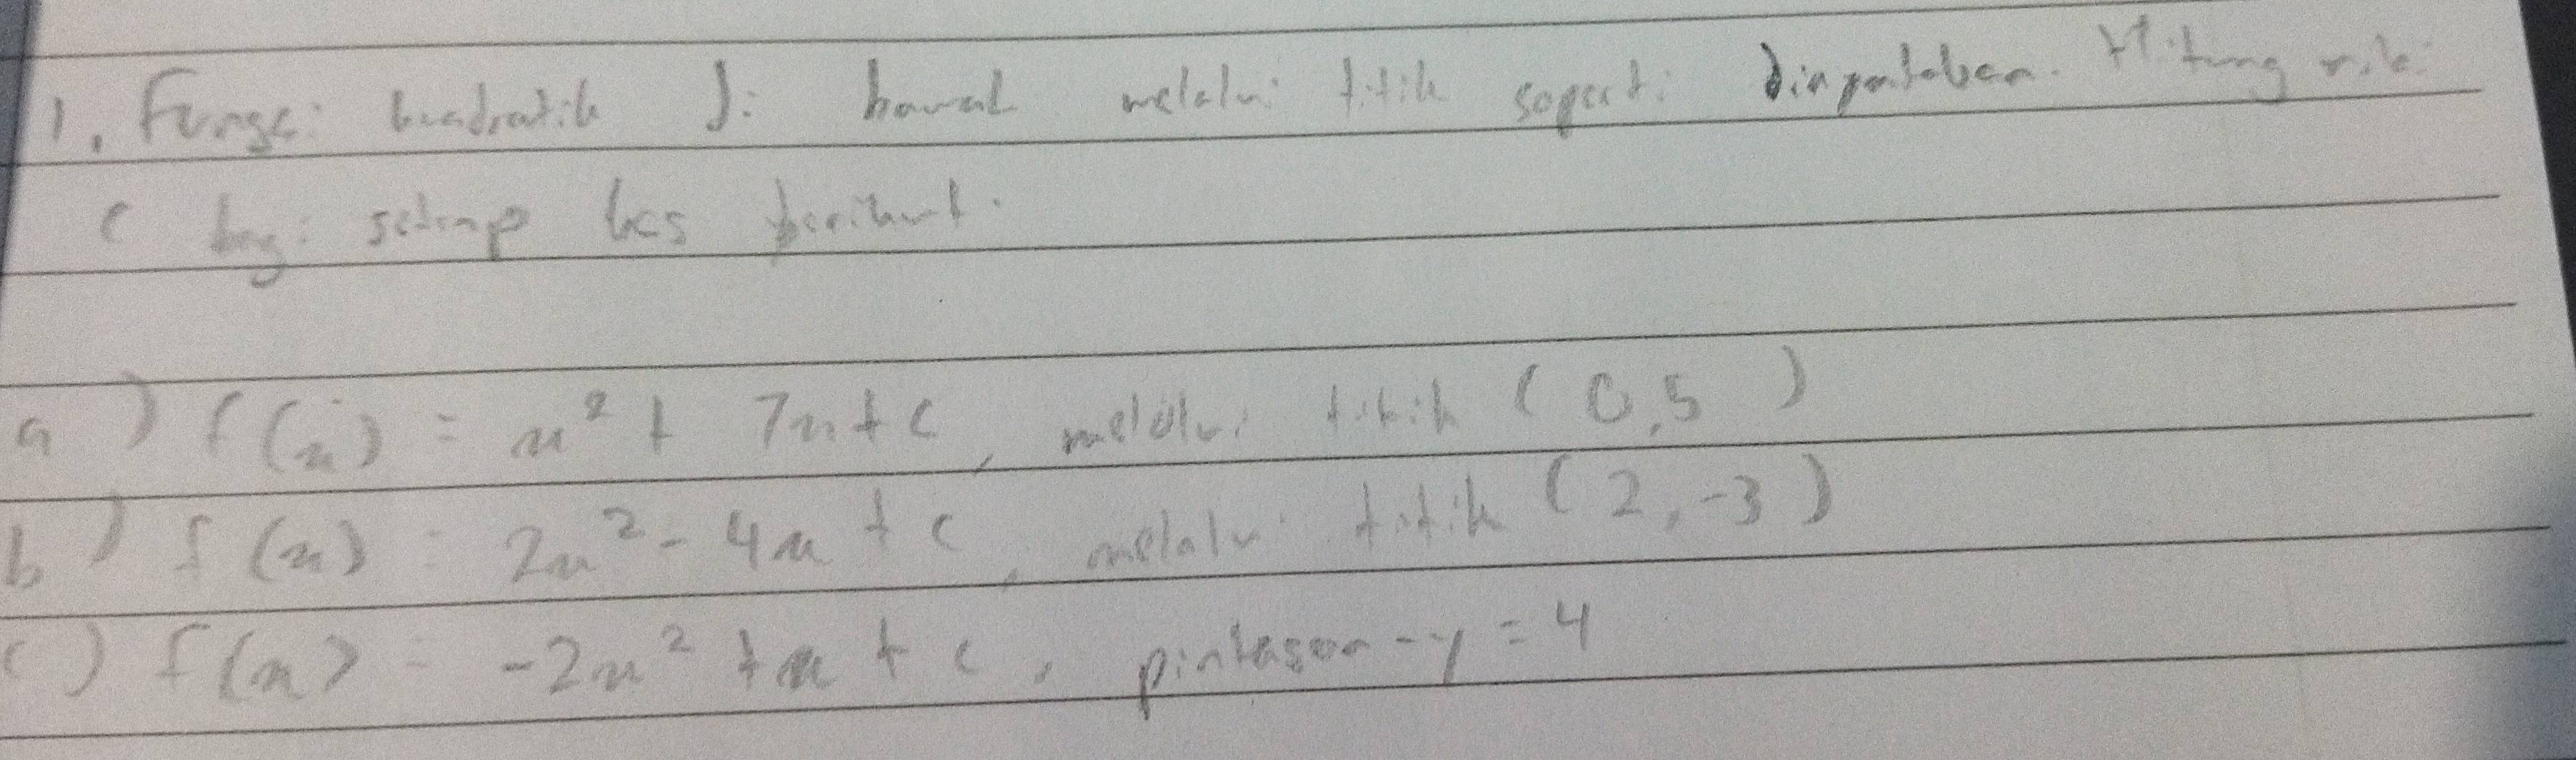 1. Fungsi kuadratik di bawah melalui titik seperti dinyatakan. Hitung nilai
c bagi setiap kes berikut.
a) f(x) = x² + 7x + c, melalui titik (0,5)
b) f(x) = 2x² - 4x + c, melalui titik (2,-3)
c) f(x) = -2x² + x + c, pintasan-y = 4